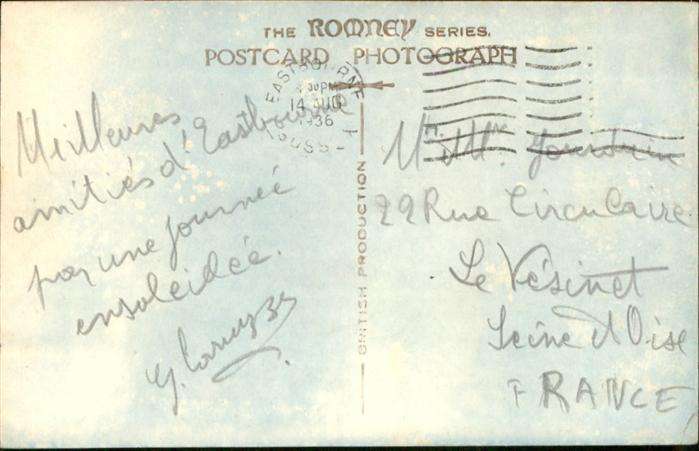 THE ROMNEY SERIES.
POSTCARD PHOTOGRAPH
EASTBOURNE
14 AUG
1936
SUSSEX
BRITISH PRODUCTION
Meilleures
amitiés d'Eastbourne
par une journée
ensoleillée.
Mr Mme
29 Rue Circulaire
Le Vésinet
Seine et Oise
FRANCE